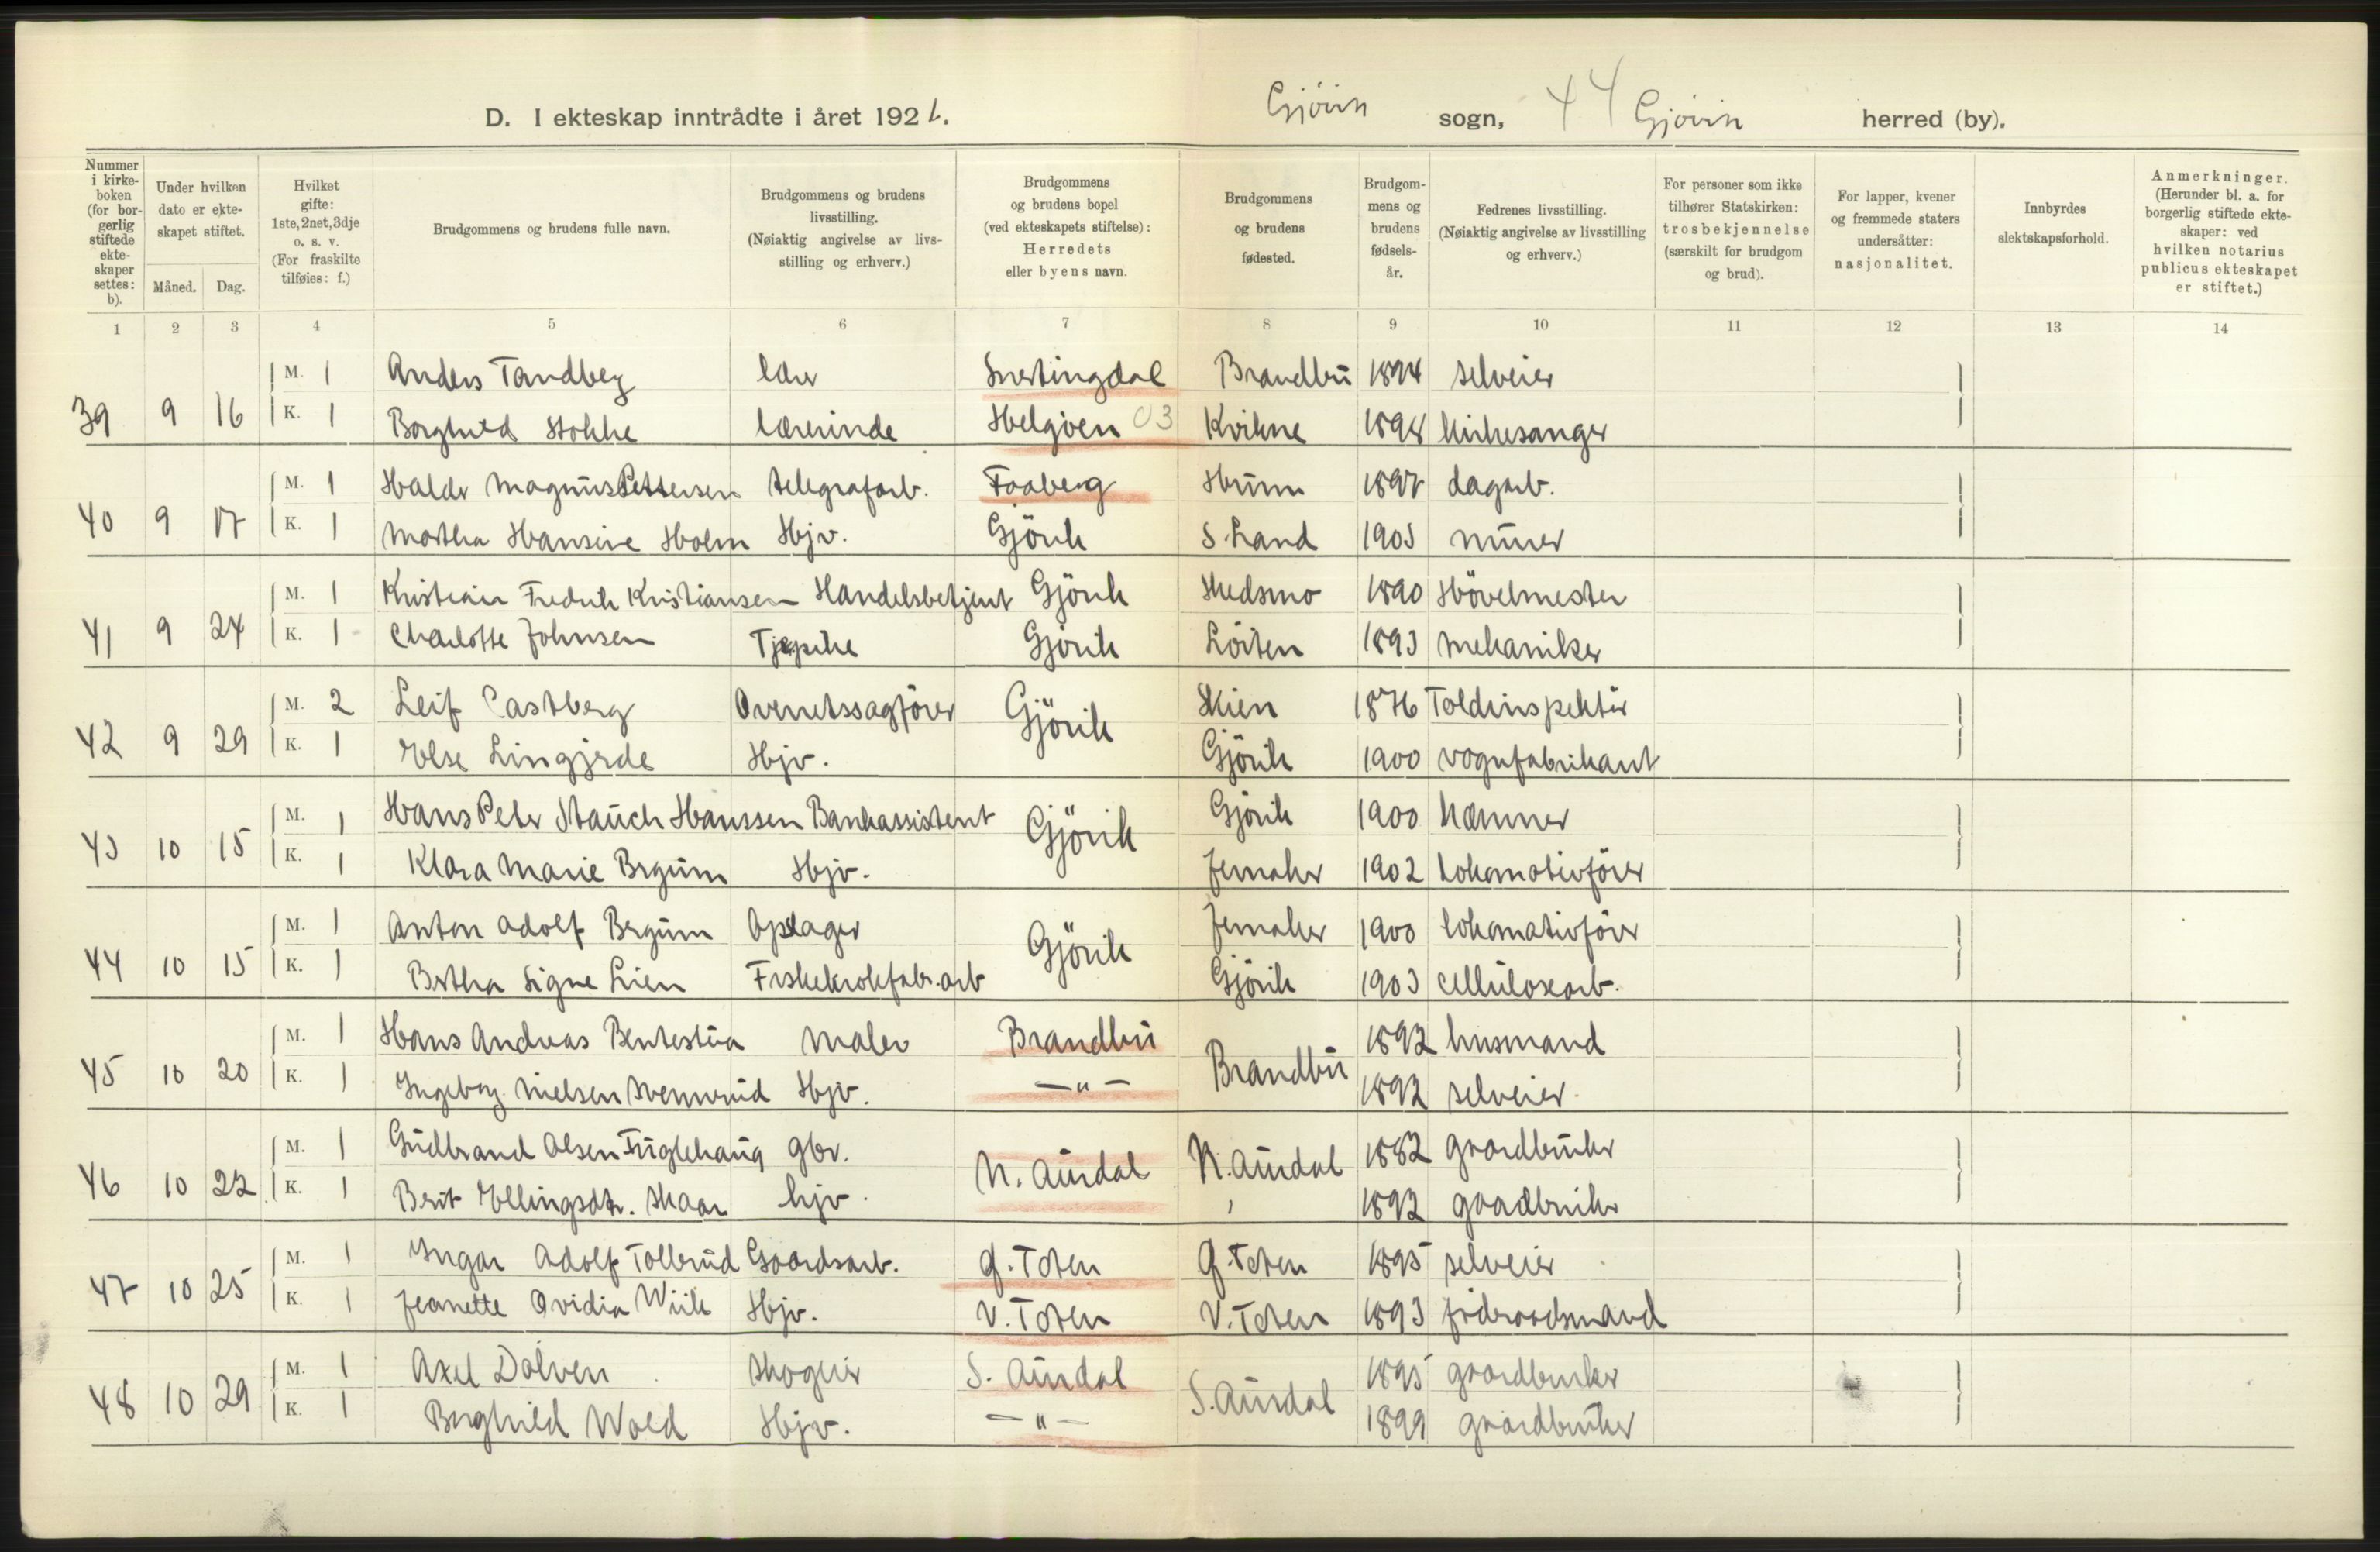 D. I ekteskap inntrådte i året 1921.
Gjövik sogn, 44 Gjövik herred (by).
Nummer i kirkeboken (for borgerlig stiftede ekteskaper settes: b).
Under hvilken dato er ekteskapet stiftet.
Måned. Dag.
Hvilket gifte: 1ste, 2net, 3dje o. s. v. (For fraskilte tilføies: f.)
Brudgommens og brudens fulle navn.
Brudgommens og brudens livsstilling. (Nøiaktig angivelse av livsstilling og erhverv.)
Brudgommens og brudens bopel (ved ekteskapets stiftelse): Herredets eller byens navn.
Brudgommens og brudens fødested.
Brudgommens og brudens fødselsår.
Fedrenes livsstilling. (Nøiaktig angivelse av livsstilling og erhverv.)
For personer som ikke tilhører Statskirken: trosbekjennelse (særskilt for brudgom og brud).
For lapper, kvener og fremmede staters undersåtter: nasjonalitet.
Innbyrdes slektskapsforhold.
Anmerkninger. (Herunder bl. a. for borgerlig stiftede ekteskaper: ved hvilken notarius publicus ekteskapet er stiftet.)
1 2 3 4 5 6 7 8 9 10 11 12 13 14
39 9 16 M. 1 Anders Tandberg lærer Snertingdal Brandbu 1894 selveier
K. 1 Borghild Stokke lærerinde Helgöen 03 Kvikne 1898 kirkesanger
40 9 17 M. 1 Haldr Magnus Pettersen telegrafarb. Faaberg Hunn 1897 dagarb.
K. 1 Martha Hansine Holm Hjv. Gjövik S. Land 1903 murer
41 9 24 M. 1 Kristian Fredrik Kristiansen Handelsbetjent Gjövik Skedsmo 1890 Hövelmester
K. 1 Charlotte Johnsen Gjövik Löiten 1893 mekaniker
42 9 29 M. 2 Leif Castberg Overretssagförer Gjövik Skien 1876 Toldinspektör
K. 1 Else Lingjerde Hjv. Gjövik 1900 vognfabrikant
43 10 15 M. 1 Hans Peter Stauch Hanssen Bankassistent Gjövik Gjövik 1900 kæmner
K. 1 Klara Marie Bergum Hjv. Jevnaker 1902 lokomotivförer
44 10 15 M. 1 Anton Adolf Bergum Opslager Gjövik Jevnaker 1900 lokomotivförer
K. 1 Bertha Signe Lien Fiskekrokfabr.arb Gjövik 1903 cellulosearb.
45 10 20 M. 1 Hans Andreas Bentestua maler Brandbu Brandbu 1892 husmand
K. 1 Ingeborg Nielsen Hjv. —"— 1892 selveier
46 10 22 M. 1 Gudbrand Olsen Fuglehaug gbr. N. Aurdal N. Aurdal 1882 gaardbruker
K. 1 Berit Ellingsdtr. Skaar hjv. 1892 gaardbruker
47 10 25 M. 1 Ingar Adolf Tollerud Gaardsarb. Ö. Toten Ö. Toten 1895 selveier
K. 1 Jeanette Ovidia Wiik Hjv. V. Toten V. Toten 1893 föderaadsmand
48 10 29 M. 1 Axel Dölven skogeier S. Aurdal S. Aurdal 1895 gaardbruker
K. 1 Borghild Wold Hjv. —"— 1899 gaardbruker